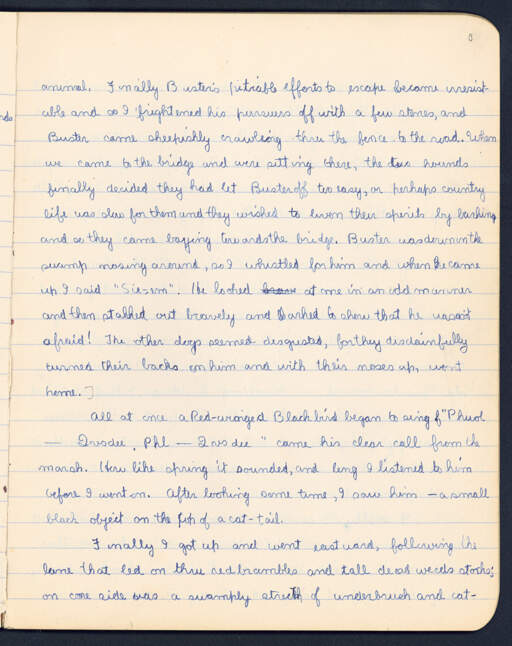 animal. Finally Buster's pitiable efforts to escape became irresist-
able and so I frightened his pursuers off with a few stones, and
Buster came sheepishly crawling thru the fence to the road. When
we came to the bridge and were sitting there, the two hounds
finally decided they had let Buster off too easy, or perhaps country
life was slow for them and they wished to liven their spirits by barking
and so they came baying towards the bridge. Buster was down in the
swamp nosing around, so I whistled for him and when he came
up I said "Sic-em". He looked at me in an odd manner
and then stalked out bravely and barked to show that he wasn't
afraid! The other dogs seemed desgusted, for they disdainfully
turned their backs on him and with their noses up, went
home.]
All at once a Red-winged Blackbird began to sing "
— , Phl — " came his clear call from the
marsh. How like spring it sounded, and long I listened to him
before I went on. After looking some time, I saw him — a small
black object on the top of a cat-tail.
Finally I got up and went eastward, following the
lane that led on thru red brambles and tall dead weeds stocks;
on one side was a swamply stretch of underbrush and cat-